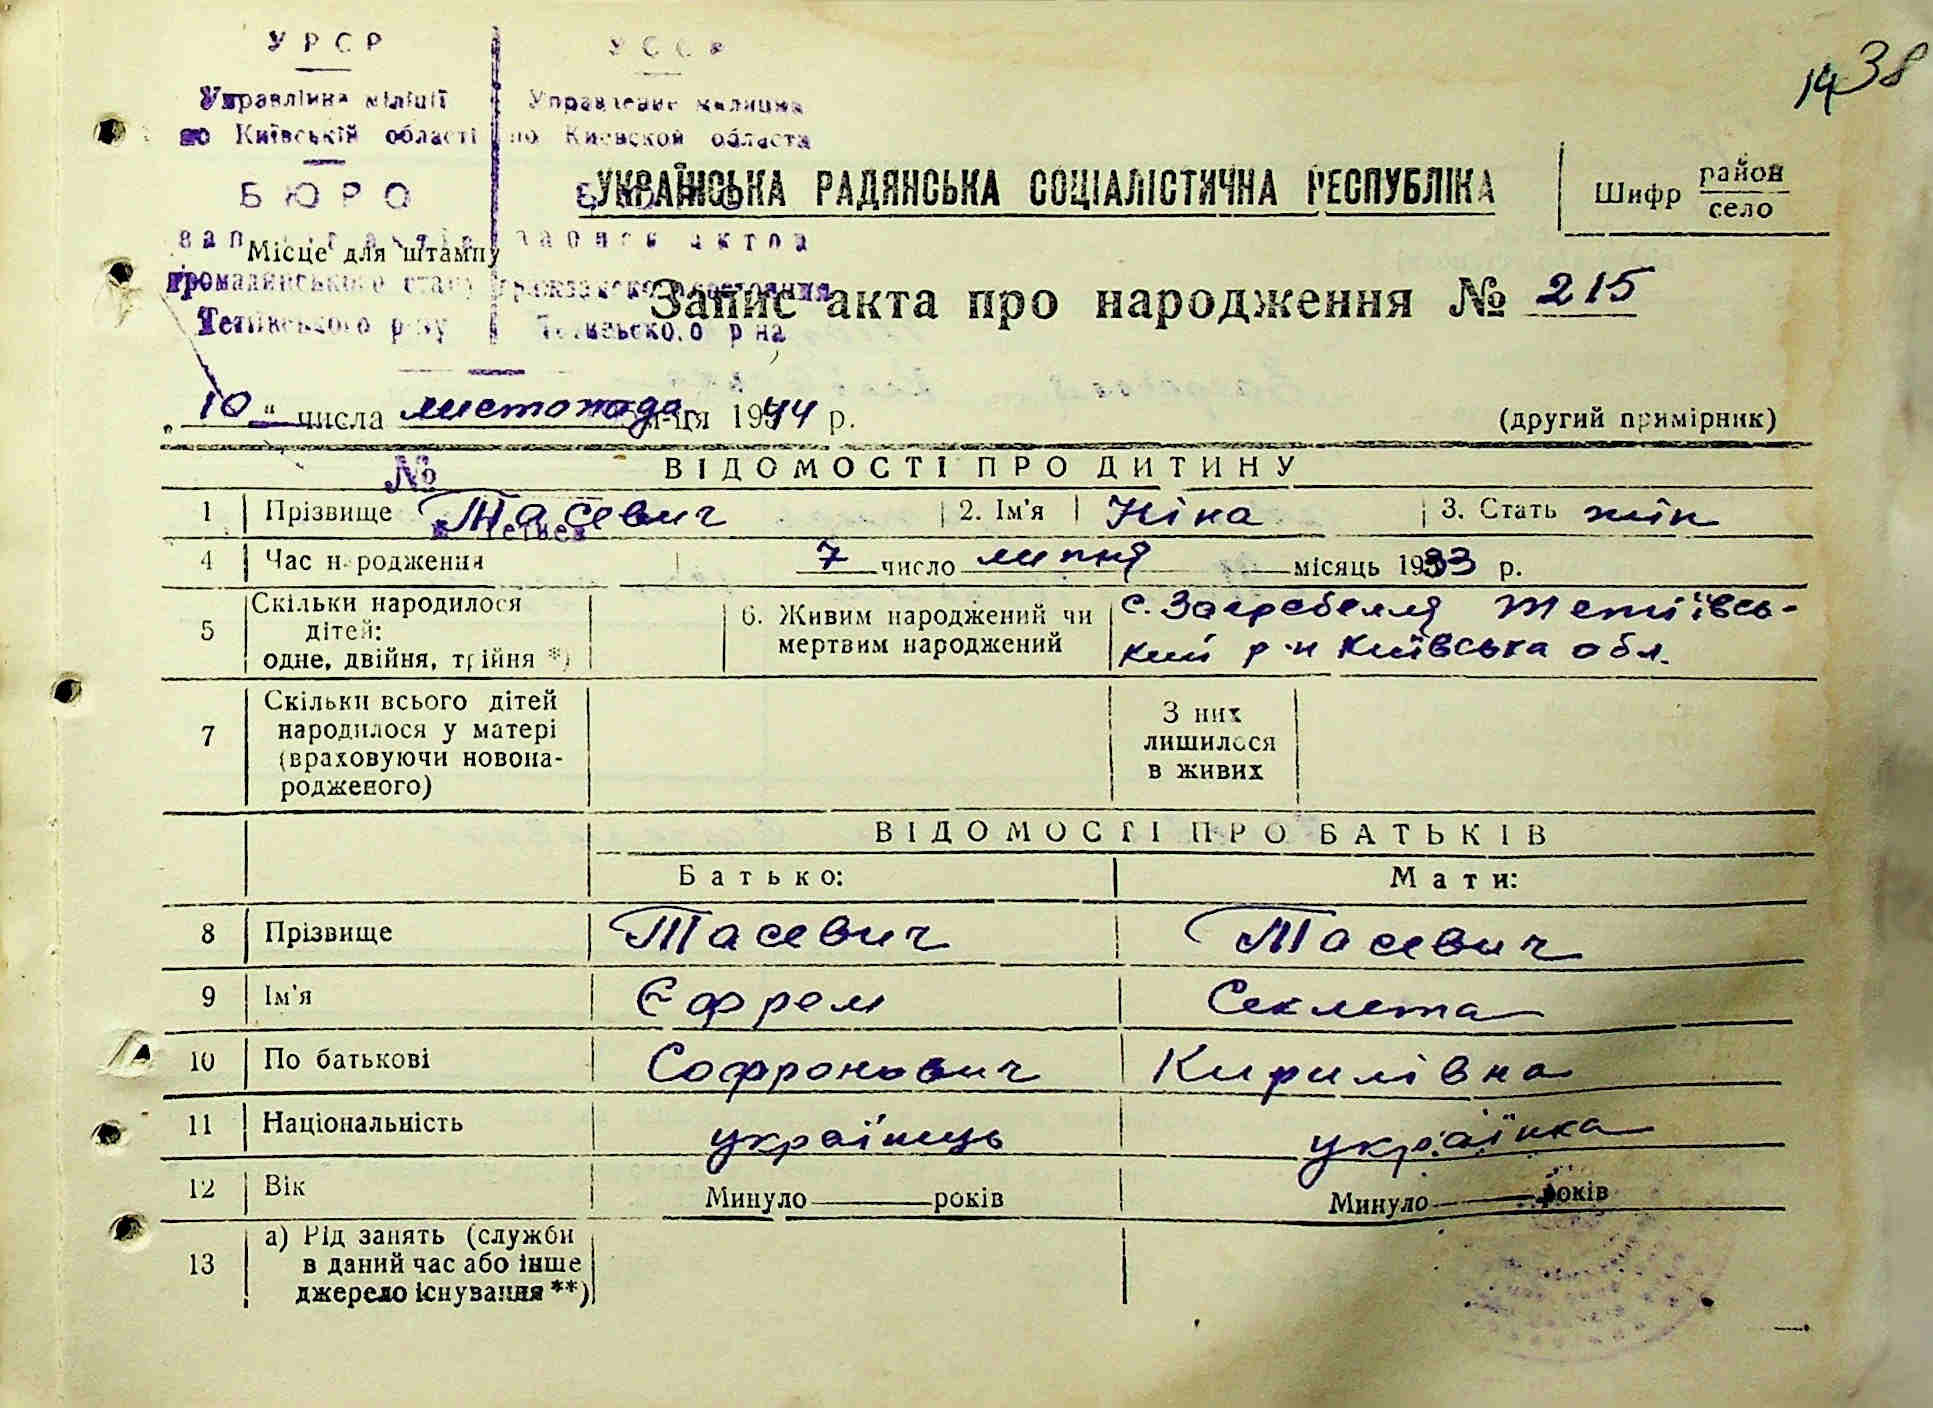 1438
УРСР
УССР
Управління міліції
Управление милиции
по Київській області
по Киевской области
БЮРО
УКРАЇНСЬКА РАДЯНСЬКА СОЦІАЛІСТИЧНА РЕСПУБЛІКА
Шифр район
село
Місце для штампу
записи актов
громадянського стану
Запис акта про народження № 215
Тетіївського р-ну
„10“ числа листопада м-ця 1944 р.
(другий примірник)
№
ВІДОМОСТІ ПРО ДИТИНУ
1 Прізвище Тасевич 2. Ім'я Ніна 3. Стать жін
4 Час народження 7 число липня місяць 1933 р.
5 Скільки народилося
дітей:
одне, двійня, трійня *)
6. Живим народжений чи
мертвим народжений
с. Загребелля Тетіївсь-
кий р-н Київська обл.
7 Скільки всього дітей
народилося у матері
(враховуючи новона-
родженого)
З них
лишилося
в живих
ВІДОМОСТІ ПРО БАТЬКІВ
Батько: Мати:
8 Прізвище Тасевич Тасевич
9 Ім'я Єфрем Секлета
10 По батькові Софронович Кирилівна
11 Національність українець українка
12 Вік Минуло років Минуло років
13 а) Рід занять (служби
в даний час або інше
джерело існування **)